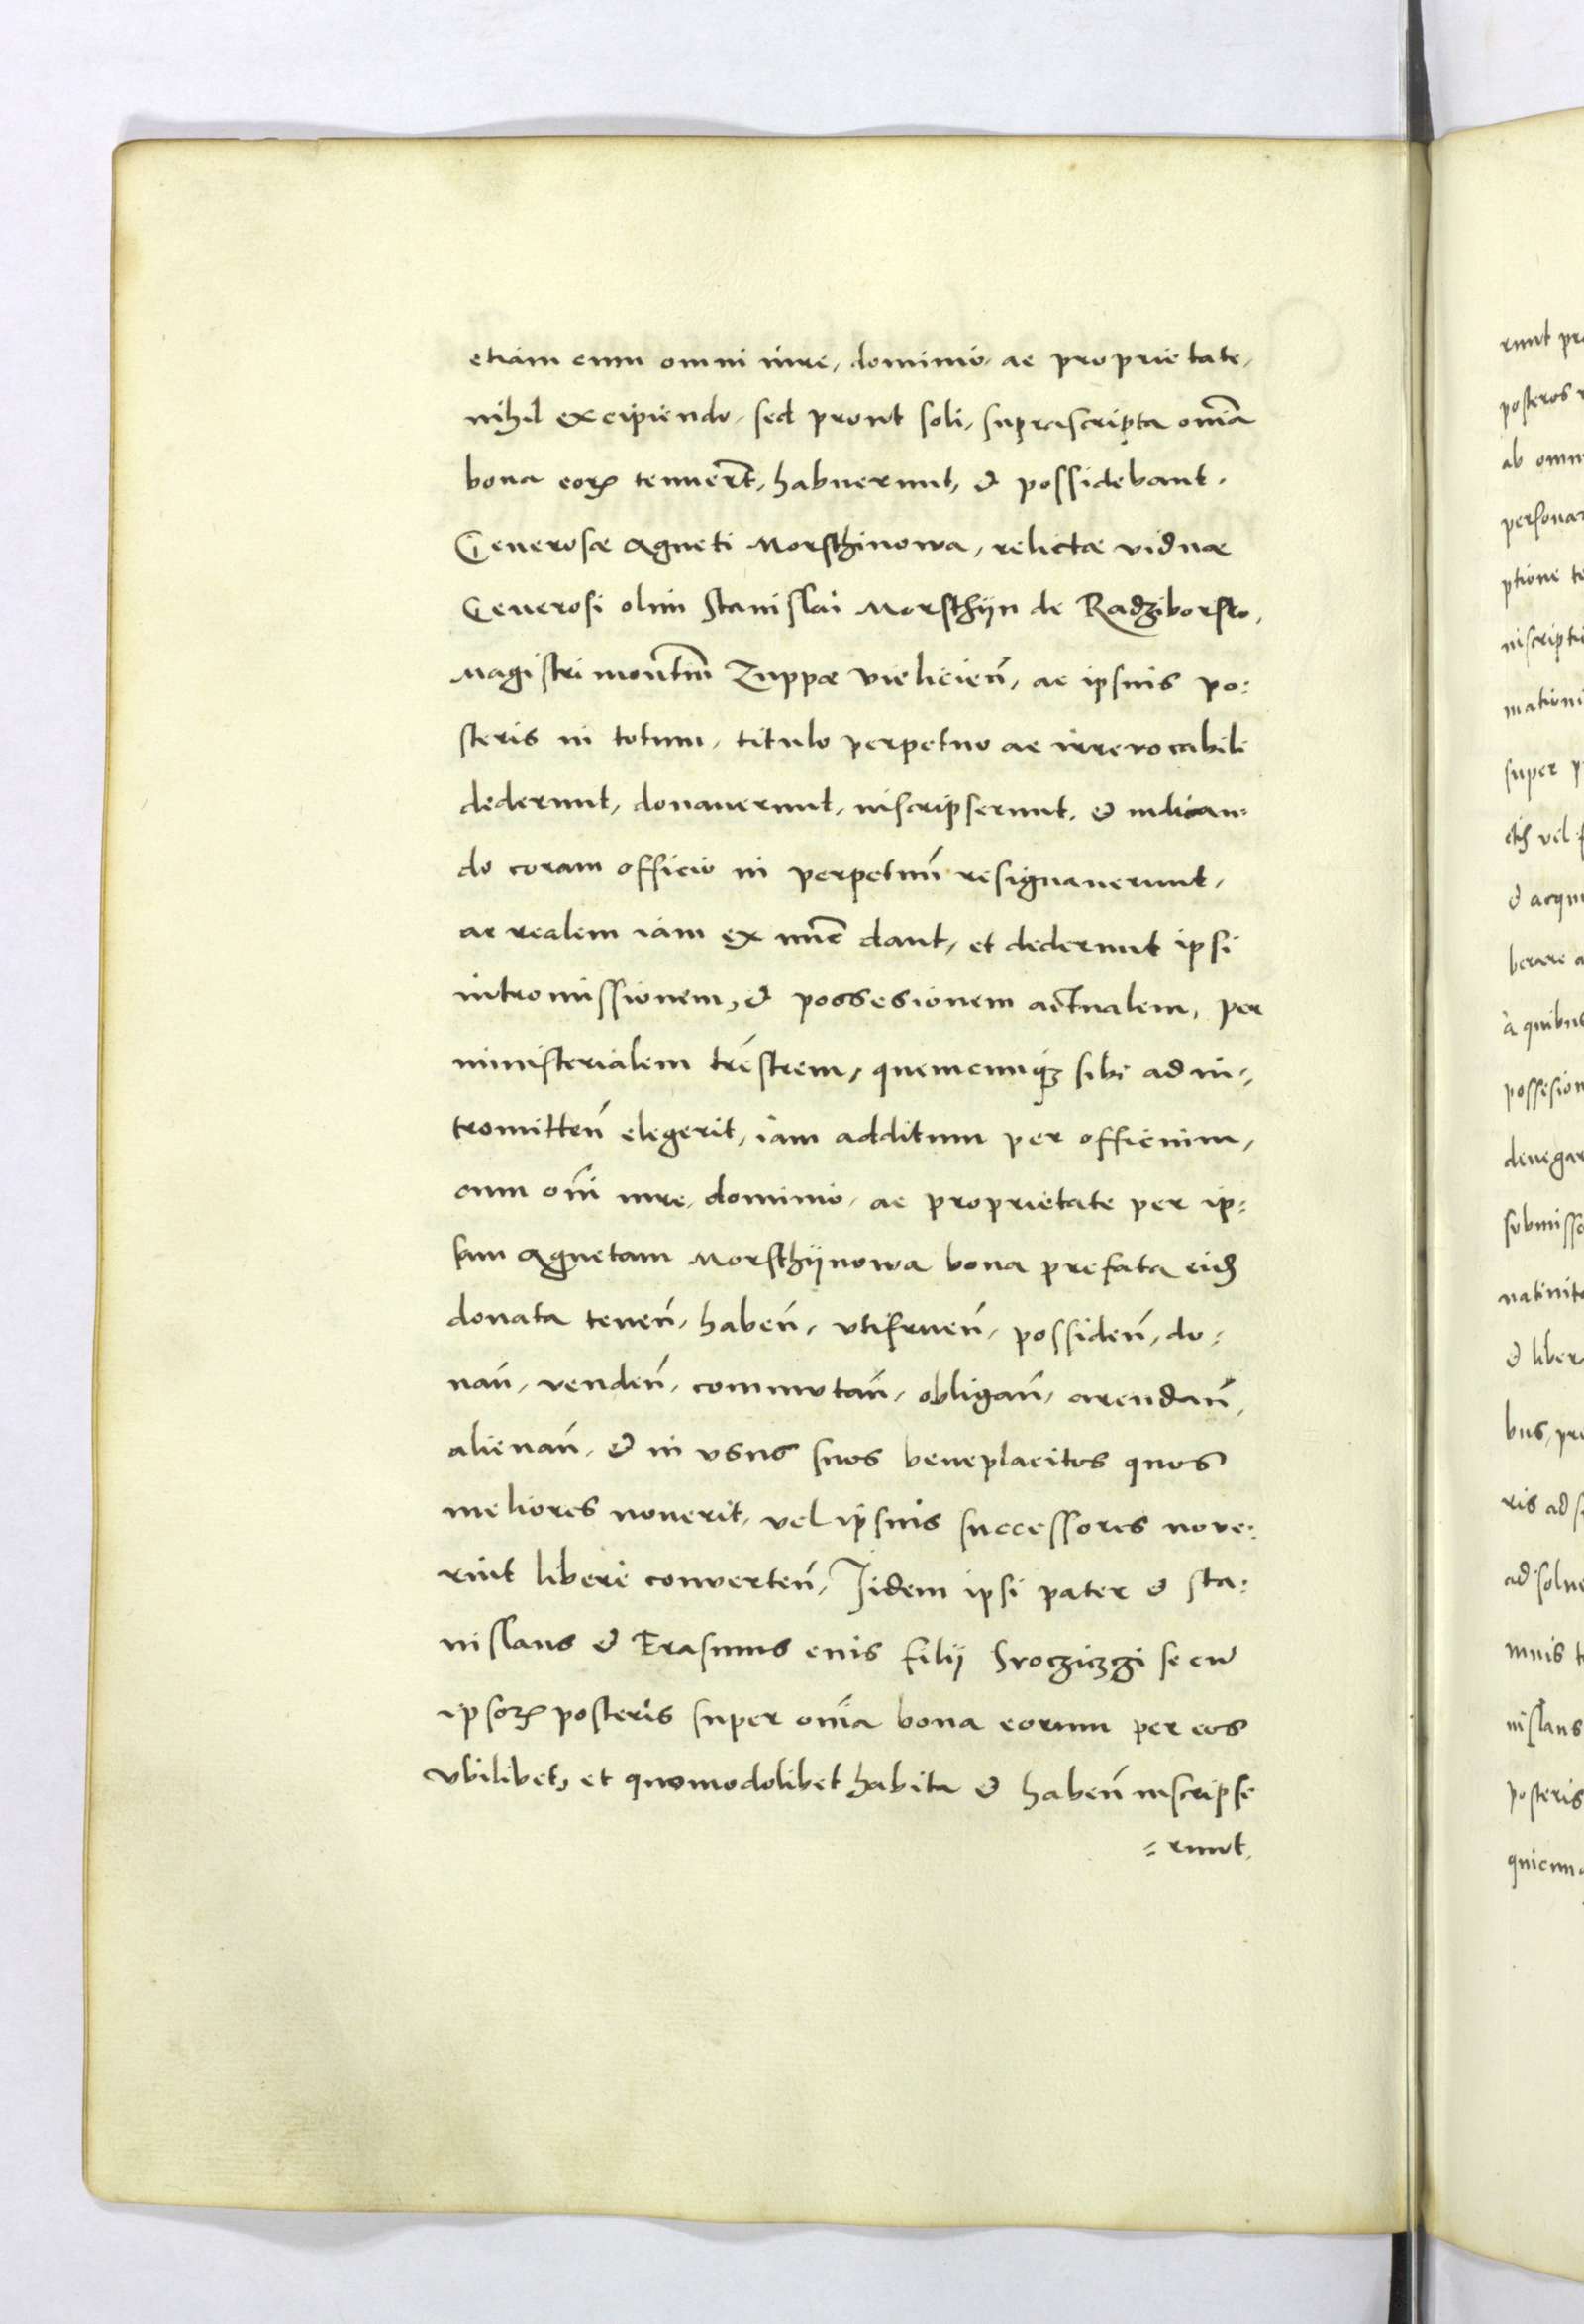 etiam cum omni iure, dominio, ac proprietate,
nihil excipiendo, sed prout soli, suprascripta om̃ia
bona eoꝝ tenuer̃t, habuerunt, & possidebant.
Generosæ Agneti Morsthinowa, relictæ viduæ
Generosi olim Stanislai Morsthijn de Radziborsko,
Magistri montiũ Zuppæ vielicien̄, ac ipsius po:
steris in totum, titulo perpetuo ac irrevocabili
dederunt, donauerunt, inscripserunt, & iudican:
do coram officio in perpetuũ resignauerunt,
ac realem iam ex nũc dant, et dederunt ipsi
intromissionem, & possesionem actualem, per
ministerialem tr̃estrem, quemcunqȝ sibi ad in,,
tromitten̄ elegerit, iam additum per officium,
cum om̃i iure, dominio, ac proprietate per ip:
sam Agnetam Morsthijnowa bona prefata eidẽ
donata tenen̄, haben̄, vtifruen̄, possiden̄, do:
nan̄, venden̄, commutan̄, obligan̄, arendan̄,
alienan̄, & in vsus suos beneplacitos quos
meliores nouerit, vel ipsius successores noue:
rint libere conuerten̄, Iidem ipsi pater & Sta:
nislaus & Erasmus euis filij Sroczițzgi se cũ
ipsoꝝ posteris super om̃ia bona eorum per eos
vbilibet, et quomodolibet habita & haben̄ inscripse
=runt,
runt pr
posteros
ab omn
persona
ptione te
inscripti
mationi
super p
vel
& acqui
berare a
à quibus
possesion
denegar
submiss
& liber
bus, pre
ris ad s
ad solue
nislaus
posteris
quicun